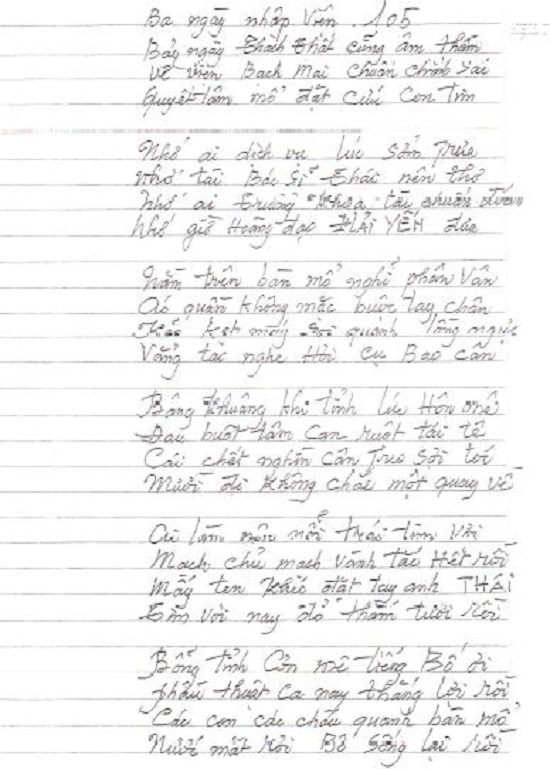 Ba ngày nhập viện . 105
Bảy ngày thách thất cũng âm thầm
về viện Bạch Mai chuẩn chính xác
Quyết tâm mổ đặt cứu con tim
Nhớ ai dịch vụ lúc sớm trưa
nhớ tài Bác Sĩ Thái nên thơ
Nhớ ai trưởng khoa tàu chuẩn
Nhớ giờ Hoàng đạo HẢI YẾN đưa
Nằm trên bàn mổ nghĩ phân vân
Áo quần không mặc buộc tay chân
quanh lồng ngực
Văng tác nghe Hỏi cụ Bao cân
Bâng khuâng khi tỉnh lúc Hôn mê
Đau buốt tâm can ruột tái tê
Cái chết nghìn cân treo sợi tóc
Mười đi không chắc một quay về
Ai làm nên nổi trái tim vui
Mạch chủ mạch vành tắc Hết rồi
Mấy ten khéo đặt tay anh THÁI
Tim vui nay đỏ thắm tươi rồi
Bỗng tỉnh Cơn mê tiếng Bố ơi
phẫu thuật ca nay thắng lợi rồi
Các con các cháu quanh bàn mổ
Nước mắt rơi Bố sống lại rồi